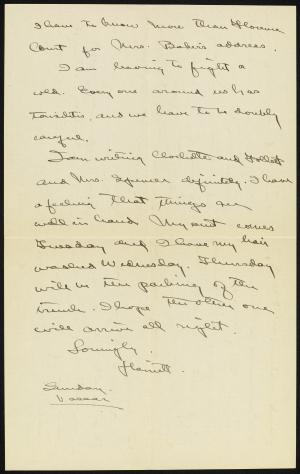 I have to know more than Florence
Court for Mrs. Baker's address.
I am having to fight a
cold. Every one around us has
tonsilitis, and we have to be doubly
careful.
I am writing Charlotte and
and Mrs. Spencer definitely. I have
a feeling that things are
well in hand. My suit comes
Tuesday and I have my hair
washed Wednesday. Thursday
will see the packing of the
trunk. I hope the other one
will arrive all right.
Lovingly,
Harriett.
Sunday.
Vassar